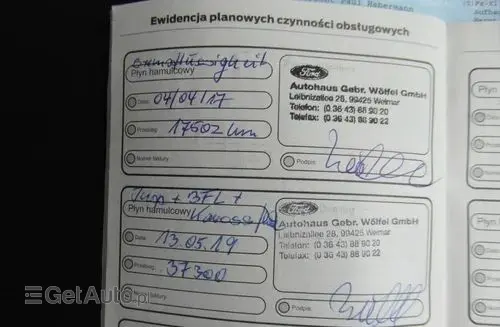 Paul Habermann
Ewidencja planowych czynności obsługowych
Płyn hamulcowy
Data 04/04/17
Przebieg 17502 km
Numer faktury
Ford
Autohaus Gebr. Wölfel GmbH
Leibnizallee 28, 99425 Weimar
Telefon: (0 36 43) 88 90 20
Telefax: (0 36 43) 88 90 22
Podpis
+ BFL +
Płyn hamulcowy
Data 13.05.19
Przebieg 37300
Numer faktury
Ford
Autohaus Gebr. Wölfel GmbH
Leibnizallee 28, 99425 Weimar
Telefon: (0 36 43) 88 90 20
Telefax: (0 36 43) 88 90 22
Podpis
GetAuto.pl